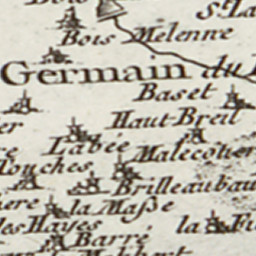 Bois
St. La
Bois Melenne
Germain du
Baset
Haut Breil
er
Labée
Malecotier
louches
Brilleaubau
ere
la Maße
les Hayes
la Fi
Barré